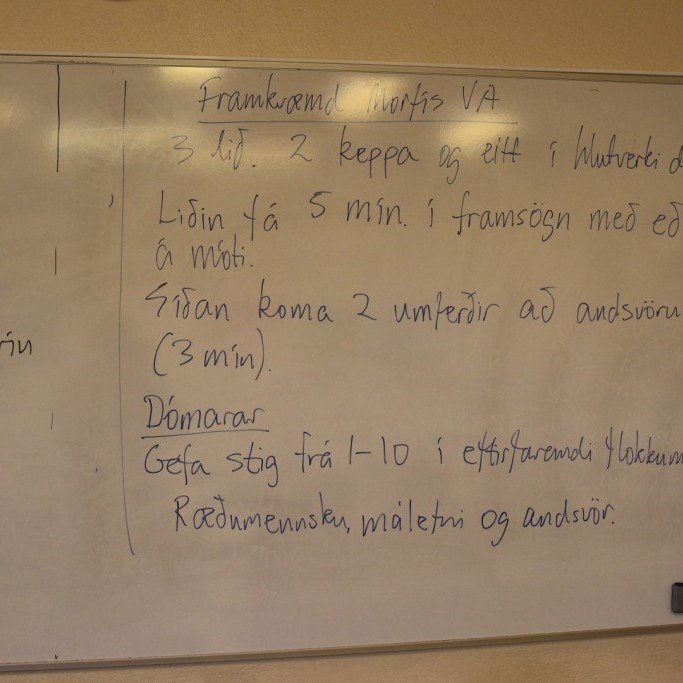 Framkvæmd Morfís VA
3 lið. 2 keppa og eitt í hlutverki d
Liðin fá 5 mín. í framsögn með eð
á móti.
Síðan koma 2 umferðir að andsvöru
(3 mín).
Dómarar
Gefa stig frá 1-10 í eftirfarandi flokkum
Ræðumennsku, málefni og andsvör.